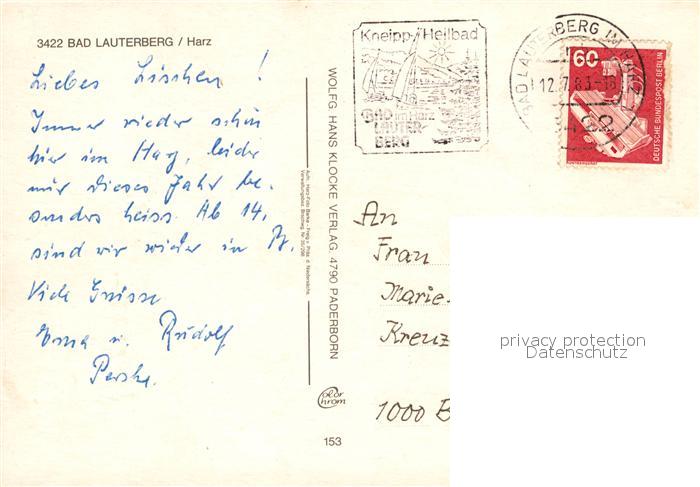 3422 BAD LAUTERBERG / Harz
Liebes Lieschen !
Immer wieder schön
hier im Harz, leider
nur dieses Jahr be-
sonders heiss. Ab 14.
sind wir wieder in B.
Viele Grüsse
Erna u. Rudolf
WOLFG. HANS KLOCKE VERLAG, 4790 PADERBORN
Color
chrom
153
Kneipp-Heilbad
BAD im Harz
LAUTER-
BERG
BAD LAUTERBERG IM HARZ
12.-7.83-18
3422
60
DEUTSCHE BUNDESPOST BERLIN
An
Frau
Marie-
Kreuz
1000 B
privacy protection
Datenschutz